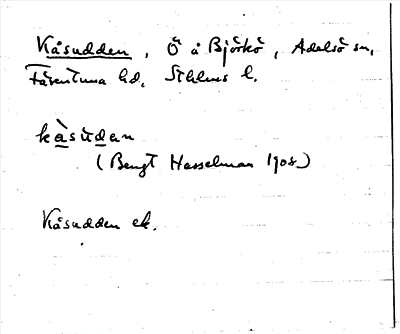 Kåsudden, Ö å Björkö, Adelsö sn,
Färentuna hd, Sthlms l.
kàsùdan
(Bengt Hesselman 1905)
Kåsudden ek.